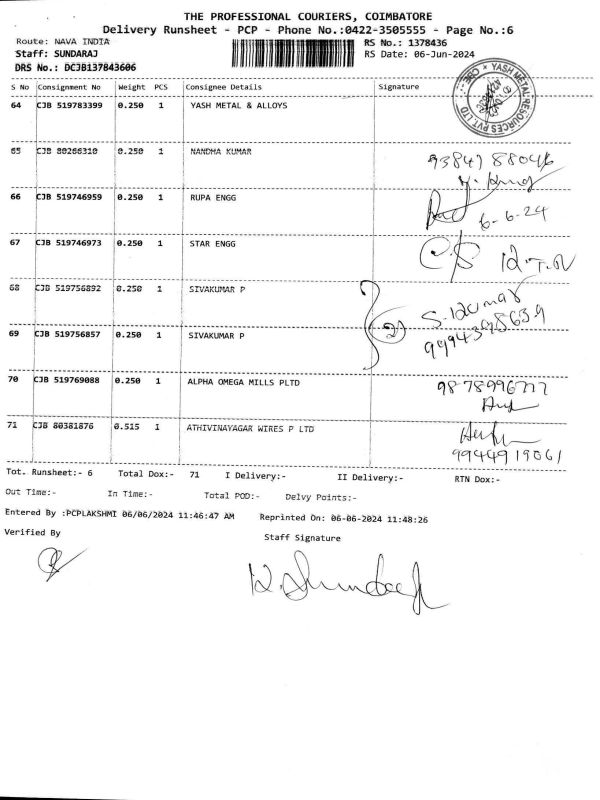 THE PROFESSIONAL COURIERS, COIMBATORE
Delivery Runsheet - PCP - Phone No.:0422-3505555 - Page No.:6
Route: NAVA INDIA RS No.: 1378436
Staff: SUNDARAJ RS Date: 06-Jun-2024
DRS No.: DCJB137843606
S No Consignment No Weight PCS Consignee Details Signature
64 CJB 519783399 0.250 1 YASH METAL & ALLOYS
YASH METAL RESOURCES PVT. LTD
65 CJB 80266310 0.250 1 NANDHA KUMAR
66 CJB 519746959 0.250 1 RUPA ENGG 6-6-24
67 CJB 519746973 0.250 1 STAR ENGG
68 CJB 519756892 0.250 1 SIVAKUMAR P
S. Kumar
2
69 CJB 519756857 0.250 1 SIVAKUMAR P
70 CJB 519769088 0.250 1 ALPHA OMEGA MILLS PLTD
71 CJB 80381876 0.515 1 ATHIVINAYAGAR WIRES P LTD
9944919061
Tot. Runsheet:- 6 Total Dox:- 71 I Delivery:- II Delivery:- RTN Dox:-
Out Time:- In Time:- Total POD:- Delvy Points:-
Entered By :PCPLAKSHMI 06/06/2024 11:46:47 AM Reprinted On: 06-06-2024 11:48:26
Verified By Staff Signature